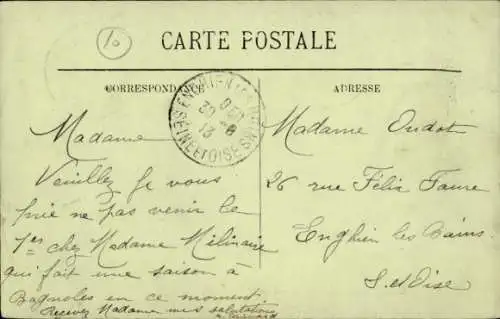 10
CARTE POSTALE
CORRESPONDANCE
ADRESSE
ENGHIEN LES BAINS
30 - 8
13
SEINE ET OISE
Madame
Veuillez Je vous
prie ne pas venir le
1er chez Madame Milinaire
qui fait une saison à
Bagnoles en ce moment
Recevez Madame mes salutations
Madame Oudot
26 rue Félix Faure
Enghien les Bains
S. et Oise